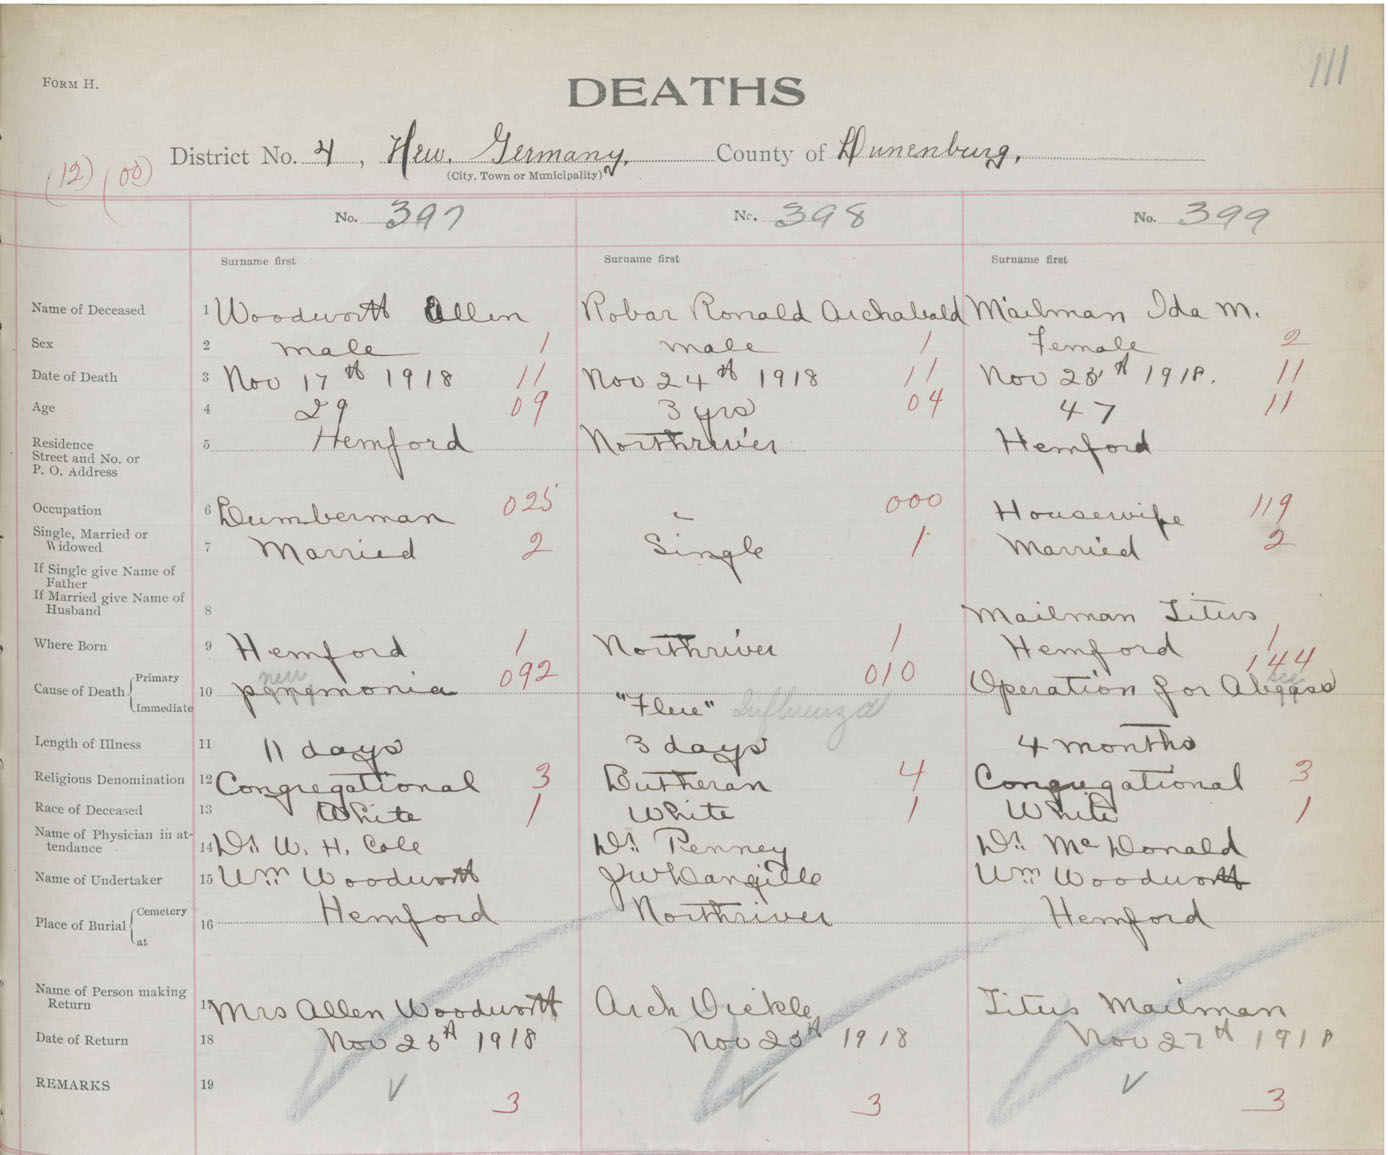 111
FORM H.
DEATHS
District No. 4, New Germany, County of Lunenburg,
(City, Town or Municipality)
(12) (00)
No. 397 No. 398 No. 399
Surname first Surname first Surname first
Name of Deceased 1 Woodworth Allen Robar Ronald Archabald Mailman Ida M.
Sex 2 male 1 male 1 Female 2
Date of Death 3 Nov 17th 1918 11 Nov 24th 1918 11 Nov 25th 1918. 11
Age 4 29 09 3 yrs 04 47 11
Residence 5 Hemford Northriver Hemford
Street and No. or
P. O. Address
Occupation 6 Lumberman 025 000 Housewife 119
Single, Married or
Widowed 7 Married 2 Single 1 Married 2
If Single give Name of
Father
If Married give Name of
Husband 8 Mailman Titus
Where Born 9 Hemford 1 Northriver 1 Hemford 1
Cause of Death Primary 10 pneumonia 092 010 Operation for Abscess 144
Immediate "Flue" Influenza
Length of Illness 11 11 days 3 days 4 months
Religious Denomination 12 Congregational 3 Lutheran 4 Congregational 3
Race of Deceased 13 White 1 White 1 White 1
Name of Physician in at-
tendance 14 Dr. W. H. Cole Dr. Penney Dr. McDonald
Name of Undertaker 15 Wm Woodworth J W Wm Woodworth
Place of Burial Cemetery 16 Hemford Northriver Hemford
at
Name of Person making
Return 17 Mrs Allen Woodworth Arch Titus Mailman
Date of Return 18 Nov 25th 1918 Nov 25th 1918 Nov 27th 1918
REMARKS 19
3 3 3